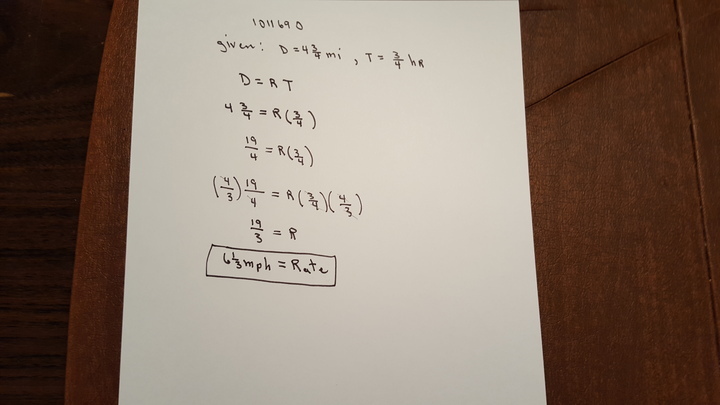 1011690
given: D = 4 3/4 mi , T = 3/4 hR
D = R T
4 3/4 = R(3/4)
19/4 = R(3/4)
(4/3) 19/4 = R(3/4)(4/3)
19/3 = R
6 1/3 mph = Rate